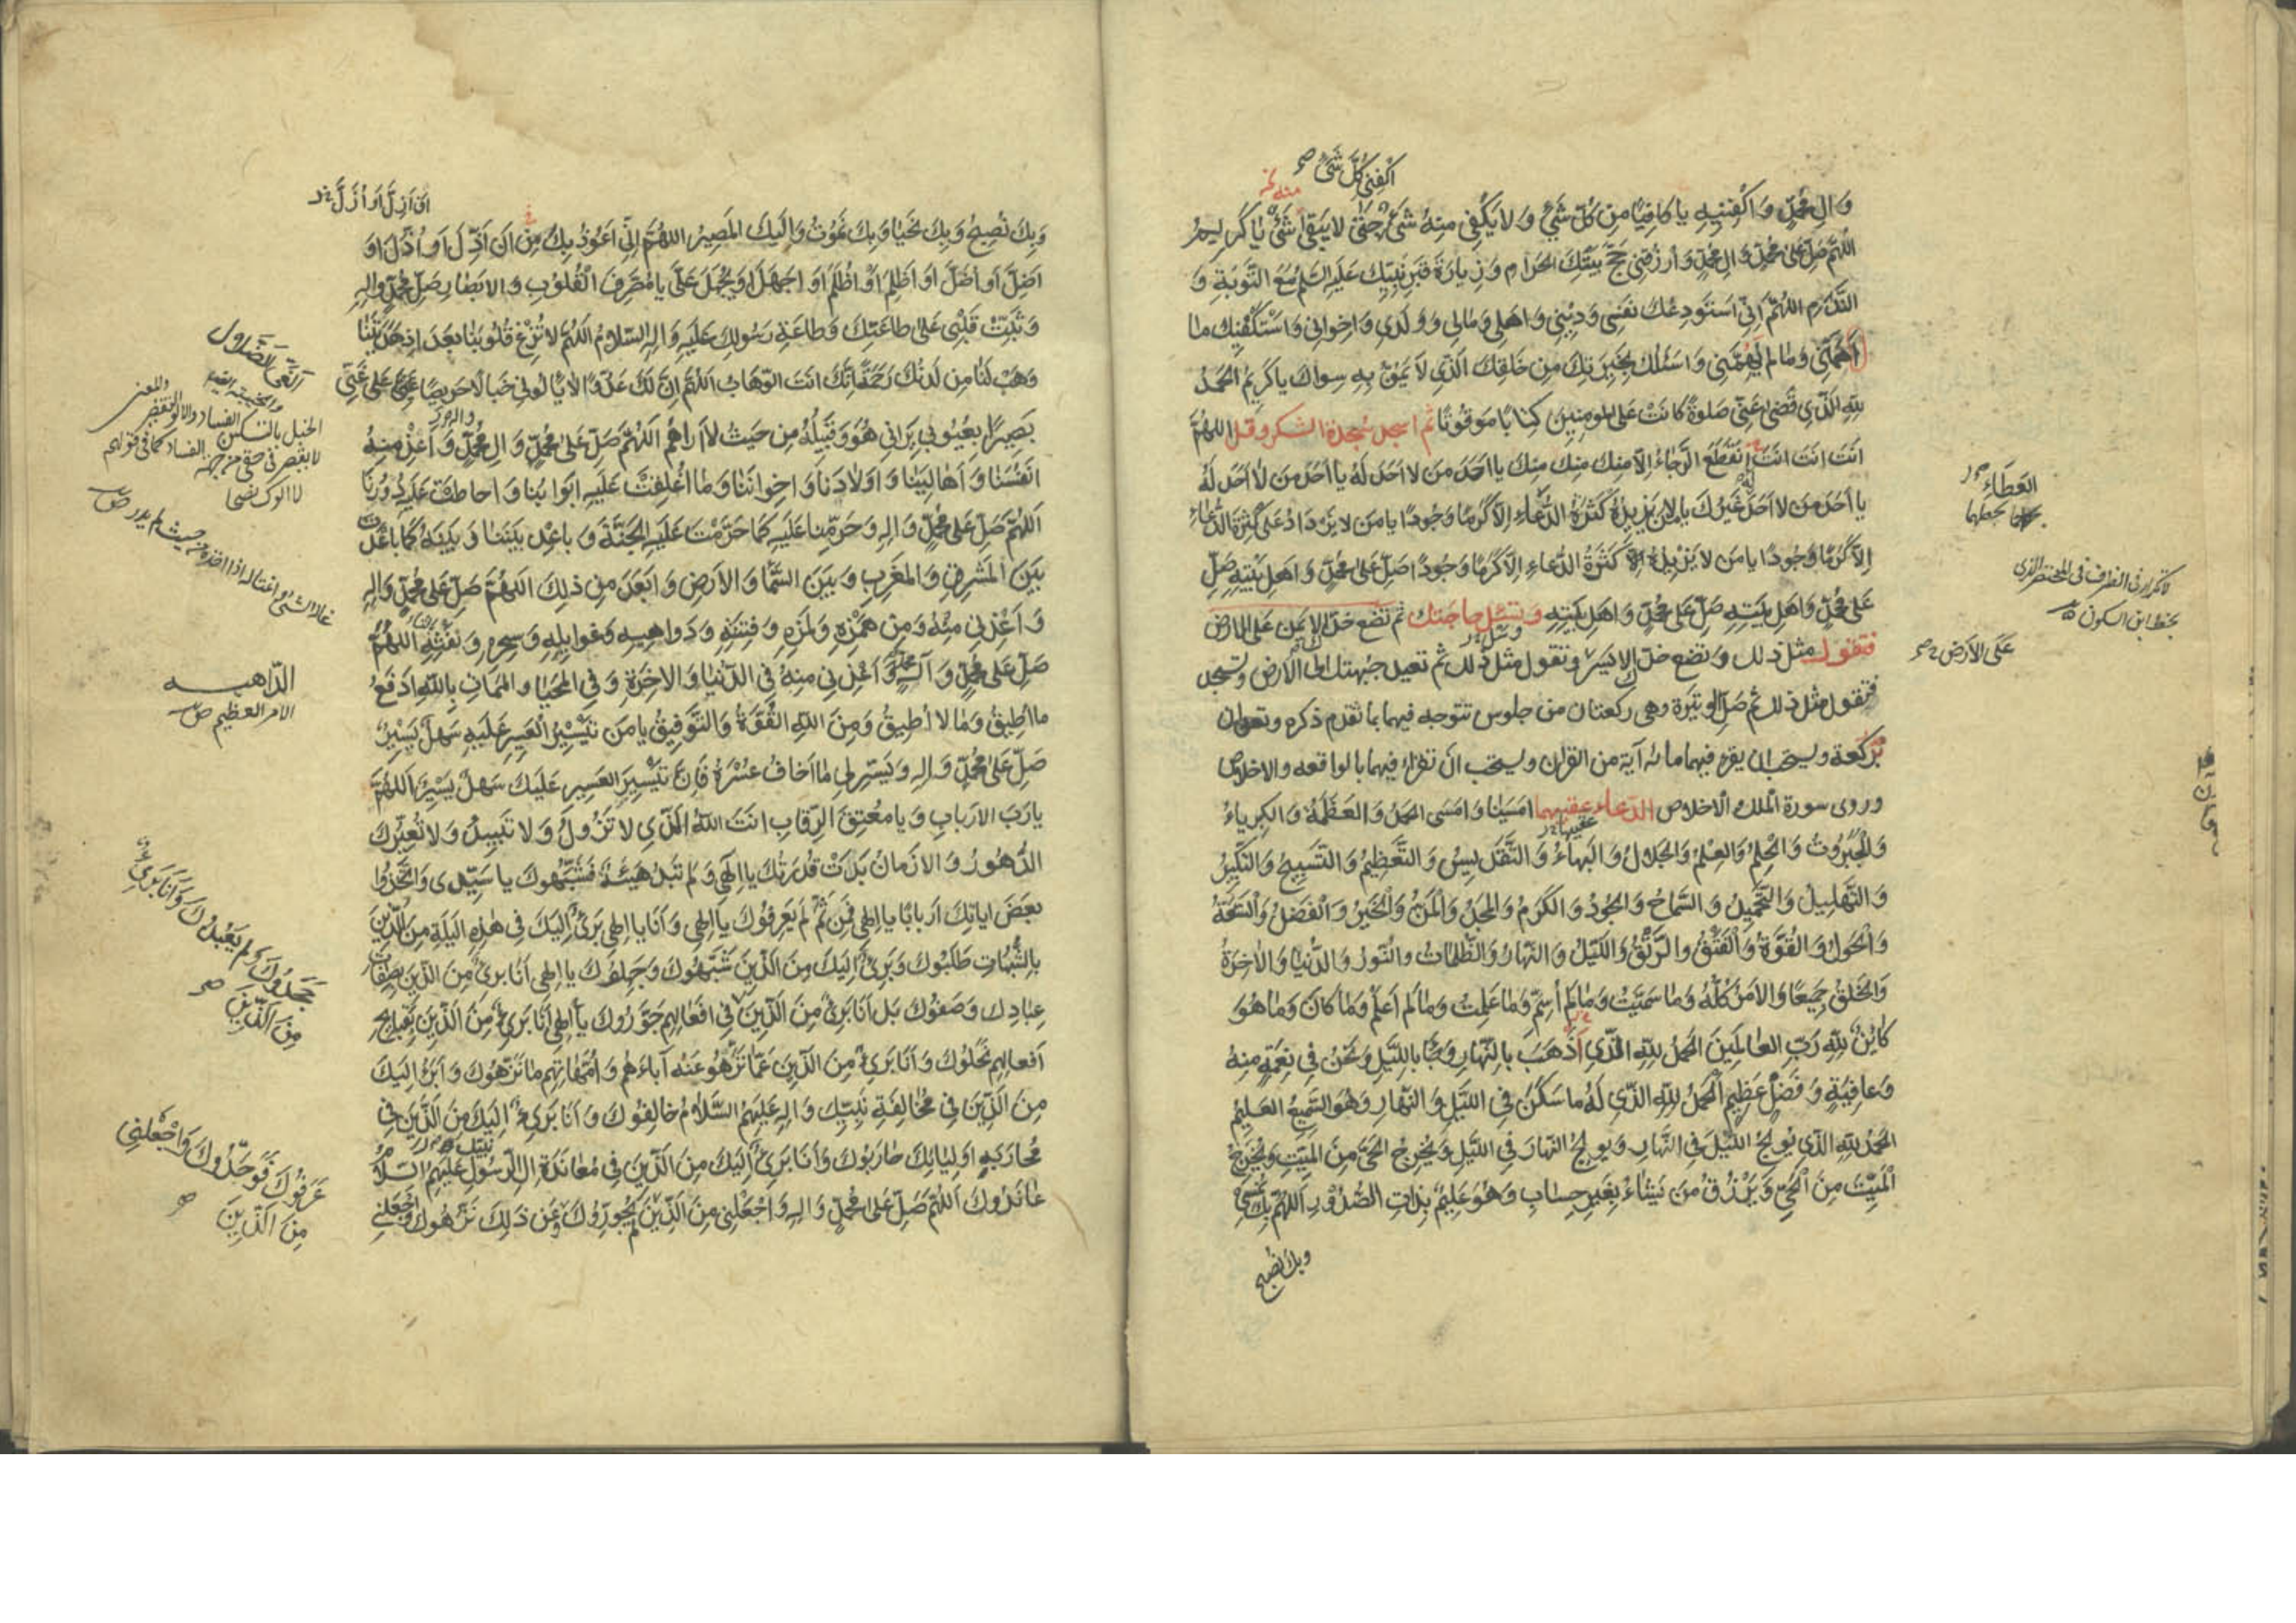 اكفني كل شئ
وَالِ مُحَمَّدٍ وَاكْفِنِيهِ يا كافِيًا مِن كُلِّ شَيْءٍ وَلا يَكْفِي مِنهُ شَئٌ حَتّى لا يَبقى شَئٌ يا كَرِيمُ
اللّهُمَّ صَلِّ عَلى مُحَمَّدٍ وَالِ مُحَمَّدٍ وَارْزُقني حَجَّ بَيْتِكَ الحَرامِ وَزِيارَةَ قَبرِ نَبِيِّكَ عَلَيهِ السَّلم مَعَ التَّوبَةِ وَ
النَّدَمِ اللّهُمَّ اِنّي اَستَودِعُكَ نَفسي وَديني وَاهلي وَمالي وَوَلَدي وَاِخواني وَاَسْتَكْفِيكَ ما
اَهَمَّني وَما لم يُهِمَّني وَاَسئَلُكَ بِخِيَرَتِكَ مِن خَلقِكَ الَّذي لا يَمُنُّ بِهِ سِواكَ يا كَريمُ الحَمدُ
لِلّهِ الَّذي قَضى عَنّي صَلوةً كانَت عَلى المومِنينَ كِتابًا مَوقُوتًا ثم اسجد سجدة الشكر وقل اللهُمَّ
اَنتَ اَنتَ اَنتَ اِنقَطَعَ الرَّجاءُ اِلّا مِنكَ مِنكَ مِنكَ يا اَحَدَ مَن لا اَحَدَ لَهُ يا اَحَدَ مَن لا اَحَدَ لَهُ
يا اَحَدَ مَن لا اَحَدَ غَيرُكَ يا مَن لا يَزيدُهُ كَثرَةُ الدُّعاءِ اِلّا كَرَمًا وَجُودًا يا مَن لا يَزدادُ عَلى كَثرَةِ الدُّعاءِ
اِلّا كَرَمًا وَجُودًا يا مَن لا يَزيدُهُ كَثرَةُ الدُّعاءِ اِلّا كَرَمًا وَجُودًا صَلِّ عَلى مُحَمَّدٍ وَاهلِ بَيْتِهِ صَلِّ
عَلى مُحَمَّدٍ وَاهلِ بَيتِهِ صَلِّ عَلى مُحَمَّدٍ وَاهلِ بَيتِهِ وتسئل حاجتك ثم تضع خدك الايمن على الارض
فتقول مثل ذلك وتضع خدك الايسر وتقول مثل ذلك ثم تعيد جبهتك الى الارض وتسجد
فتقول مثل ذلك ثم صل الوتيرة وهى ركعتان من جلوس تتوجه فيهما بما تقدم ذكره وتعدان
بركعة ويستحب ان يقرء فيهما مائه آية من القرآن ويستحب ان تقراء فيهما بالواقعه والاخلاص
وروى سورة الملك والاخلاص الدعاء عقيبهما امسَينا وَامسَى الحَمدُ وَالعَظَمَةُ وَالكِبرِياءُ
وَالجَبَرُوتُ وَالْحِلمُ وَالعِلمُ وَالجَلالُ وَالبَهاءُ وَالتَّقديسُ وَالتَّعظيمُ وَالتَّسبيحُ وَالتَّكبيرُ
وَالتَّهليلُ وَالتَّحميدُ وَالسَّماحُ وَالجُودُ وَالكَرَمُ وَالمَجدُ وَالمَنُّ وَالخَيرُ وَالفَضلُ وَالسَّعَةُ
وَالحَولُ وَالقُوَّةُ وَالفَتقُ والرَّتقُ وَاللَّيلُ وَالنَّهارُ وَالظُّلُماتُ والنُّورُ وَالدُّنيا وَالاخِرَةُ
وَالخَلقُ جَميعًا وَالاَمرُ كُلُّهُ وَما سَمَّيتُ وَما لَم اُسَمِّ وَما عَلِمتُ وَما لَم اَعلَم وَما كانَ وَما هُوَ
كائِنٌ لِلّهِ رَبِّ العالَمينَ الحَمدُ لِلّهِ الَّذي اَذهَبَ بِالنَّهارِ وَجاءَ بِاللَّيلِ وَنَحنُ في نِعمَةٍ مِنهُ
وَعافِيَةٍ وَفَضلٍ عَظيمٍ اَلحَمدُ لِلّهِ الَّذي لَهُ ما سَكَنَ فِي اللَّيلِ وَالنَّهارِ وَهُوَ السَّميعُ العَليمُ
الحَمدُ لِلّهِ الَّذي يُولِجُ اللَّيلَ فِي النَّهارِ وَيولِجُ النَّهارَ فِي اللَّيلِ وَيُخرِجُ الحَيَّ مِنَ المَيِّتِ وَيُخرِجُ
المَيِّتَ مِنَ الحَيِّ وَيَرزُقُ مَن يَشاءُ بِغَيرِ حِسابٍ وَهُوَ عَليمٌ بِذاتِ الصُّدُورِ اَللّهُمَّ بِكَ نُمسي
وبك نصبح
العَطاءِ
على الارض
ان اَزِلَّ اَو اُزَلَّ
وَبِكَ نُصبِحُ وَبِكَ نَحيا وَبِكَ نَمُوتُ وَاِلَيكَ المَصيرُ اللّهُمَّ اِنّي اَعُوذُ بِكَ مِن اَن اَذِلَّ اَو اُذَلَّ اَو
اَضِلَّ اَو اُضَلَّ اَو اَظلِمَ اَو اُظلَمَ اَو اَجهَلَ اَو يُجهَلَ عَلَيَّ يا مُصَرِّفَ القُلُوبِ وَالابصارِ صَلِّ عَلى مُحَمَّدٍ وَالِهِ
وَثَبِّت قَلبي عَلى طاعَتِكَ وَطاعَةِ رَسُولِكَ عَلَيهِ وَالِهِ السَّلامُ اللّهُمَّ لا تُزِغ قُلُوبَنا بَعدَ اِذ هَدَيتَنا
وَهَب لَنا مِن لَدُنكَ رَحمَةً اِنَّكَ اَنتَ الوَهّابُ اللّهُمَّ اِنَّ لَكَ عَدُوًّا لا يَألُوني خَبالا حَريصًا عَلى غَيّي
بَصيرًا بِعُيُوبي يَراني هُوَ وَقَبيلُهُ مِن حَيثُ لا اَراهُم اَللّهُمَّ صَلِّ عَلى مُحَمَّدٍ وَالِ مُحَمَّدٍ وَاَعِذْ مِنهُ
اَنفُسَنا وَاَهالِيَنا وَاَولادَنا وَاِخوانَنا وَما اُغلِقَت عَلَيهِ اَبوابُنا وَاَحاطَت عَلَيهِ دُورُنا
اَللّهُمَّ صَلِّ عَلى مُحَمَّدٍ وَالِهِ وَحَرِّمنا عَلَيهِ كَما حَرَّمتَ عَلَيهِ الجَنَّةَ وَباعِد بَينَنا وَبَينَهُ كَما باعَدتَ
بَينَ المَشرِقِ وَالمَغرِبِ وَبَينَ السَّما وَالاَرضِ وَاَبعَدَ مِن ذلِكَ اَللّهُمَّ صَلِّ عَلى مُحَمَّدٍ وَالِهِ
وَاَعِذني مِنهُ وَمِن هَمزِهِ وَلَمزِهِ وَفِتنَتِهِ وَدَواهيهِ وَغَوايِلِهِ وَسِحرِهِ وَنَفثِهِ اَللّهُمَّ
صَلِّ عَلى مُحَمَّدٍ وَآلِ مُحَمَّدٍ وَاَعِذني مِنهُ فِي الدُّنيا وَالاخِرَةِ وَفِي المَحيا والمَماتِ بِاللّهِ اَدفَعُ
ما اُطيقُ وَما لا اُطيقُ وَمِنَ اللّهِ القُوَّةُ وَالتَّوفيقُ يا مَن تَيسيرُ العَسيرِ عَلَيهِ سَهلٌ يَسيرٌ
صَلِّ عَلى مُحَمَّدٍ وَالِهِ وَيَسِّر لي ما اَخافُ عُسرَهُ فَاِنَّ تَيسيرَ العَسيرِ عَلَيكَ سَهلٌ يَسيرٌ اَللّهُمَّ
يا رَبَّ الاَربابِ وَيا مُعتِقَ الرِّقابِ اَنتَ اللّهُ الَّذي لا تَزُولُ وَلا تَبيدُ وَلا تُغَيِّرُكَ
الدُّهُورُ وَالاَزمانُ بَدَت قُدرَتُكَ يا اِلهي وَلَم تَبدُ هَيئَةٌ فَشَبَّهُوكَ يا سَيِّدي وَاتَّخَذُوا
بَعضَ اياتِكَ اَربابًا يا اِلهي فَمِن ثَمَّ لَم يَعرِفُوكَ يا اِلهي وَاَنا يا اِلهي بَريءٌ اِلَيكَ في هذِهِ اللَيلَةِ مِنَ الَّذينَ
بِالشُّبُهاتِ طَلَبُوكَ وَبَريءٌ اِلَيكَ مِنَ الَّذينَ شَبَّهُوكَ وَجَهِلُوكَ يا اِلهي اَنا بَريءٌ مِنَ الَّذينَ بِصِفاتِ
عِبادِكَ وَصَفُوكَ بَل اَنا بَريءٌ مِنَ الَّذينَ في اَفعالِهِم جَوَّرُوكَ يا اِلهي اَنا بَريءٌ مِنَ الَّذينَ بِقَبائِحِ
اَفعالِهِم نَحَلُوكَ وَاَنا بَريءٌ مِنَ الَّذينَ عَمّا نَزَّهُوا عَنهُ آباءَهُم وَاُمَّهاتِهِم ما نَزَّهُوكَ وَاَبرَءُ اِلَيكَ
مِنَ الَّذينَ في مُخالَفَةِ نَبِيِّكَ وَالِهِ عَلَيهِمُ السَّلامُ خالَفُوكَ وَاَنا بَريءٌ اِلَيكَ مِنَ الَّذينَ في
مُحارَبَةِ اَولِيائِكَ حارَبُوكَ وَاَنا بَريءٌ اِلَيكَ مِنَ الَّذينَ في مُعانَدَةِ الِ الرَّسُولِ عَلَيهِمُ السَّلامُ
عانَدُوكَ اَللّهُمَّ صَلِّ عَلى مُحَمَّدٍ وَالِهِ وَاجعَلني مِنَ الَّذينَ لَم يُجَوِّرُوكَ وَعَن ذلِكَ نَزَّهُوكَ وَاجعَلني
الدّاهيه
الامر العظيم ص
جَحَدُوكَ وَلَم يَعبُدُوكَ وَاَنا بَريءٌ
مِنَ الَّذينَ
عَرَفُوكَ فَوَحَّدُوكَ وَاجعَلني
مِنَ الَّذينَ